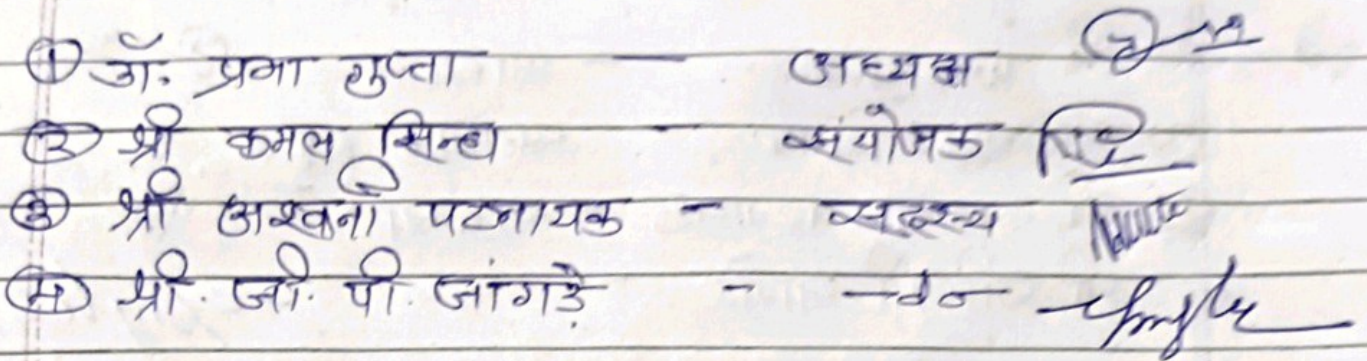 ① डॉ. प्रभा गुप्ता — अध्यक्ष
② श्री कमल सिन्हा - संयोजक
③ श्री अश्वनी पटनायक - सदस्य
④ श्री. जी. पी. जांगड़े - -do-